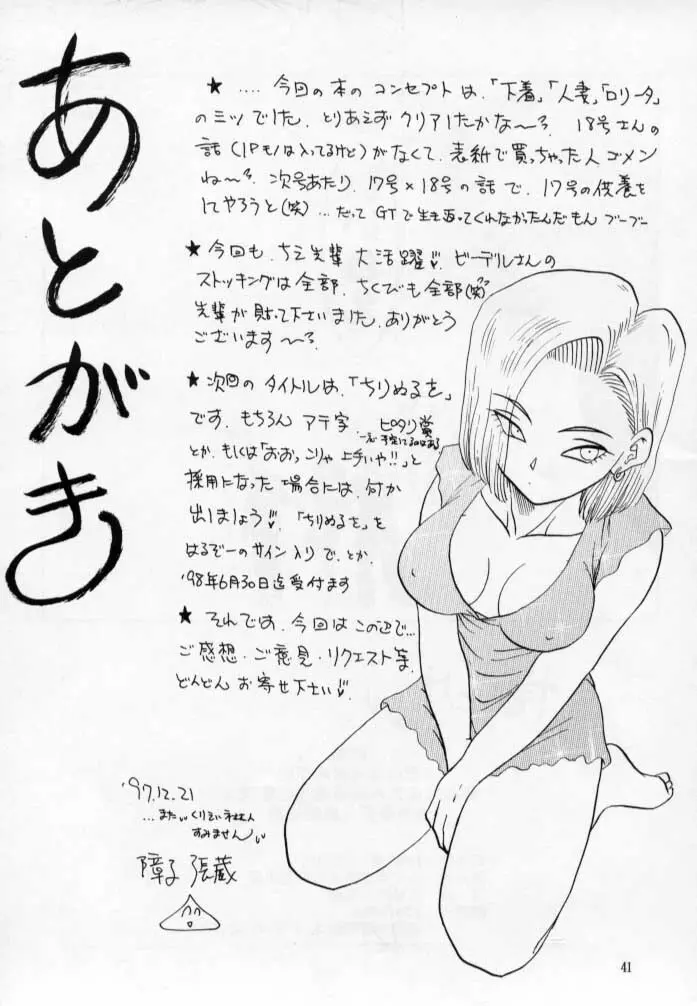 あとがき
★ .... 今回の本のコンセプトは、「下着」「人妻」「ロリータ」
のミツでした。とりあえずクリアしたかな〜?。18号さんの
話(1Pモノは入ってるけど)がなくて、表紙で買っちゃった人ゴメン
ね〜?。次号あたり、17号×18号の話で、17号の供養を
してやろうと(笑)...だって GTで生き返ってくれなかったんだもん ブーブー
★ 今回も、ちえ先輩 大活躍。ビーデルさんの
ストッキングは全部、ちくびも全部(笑)
先輩が貼って下さいました。ありがとう
ございます〜?
★ 次回のタイトルは、「ちりぬるを」
です。もちろん アテ字、ピタリ賞
とか、もしくは「おおっこりゃ上手いや!!」と
採用になった場合には、何か
出しましょう。「ちりぬるを」を
はるぞーのサイン入りで、とか。
'98年6月30日迄受付ます
★ それでは、今回はこの辺で...
ご感想・ご意見・リクエスト等
どんどんお寄せ下さい。
'97.12.21
...また
すみません
障子 張蔵
41